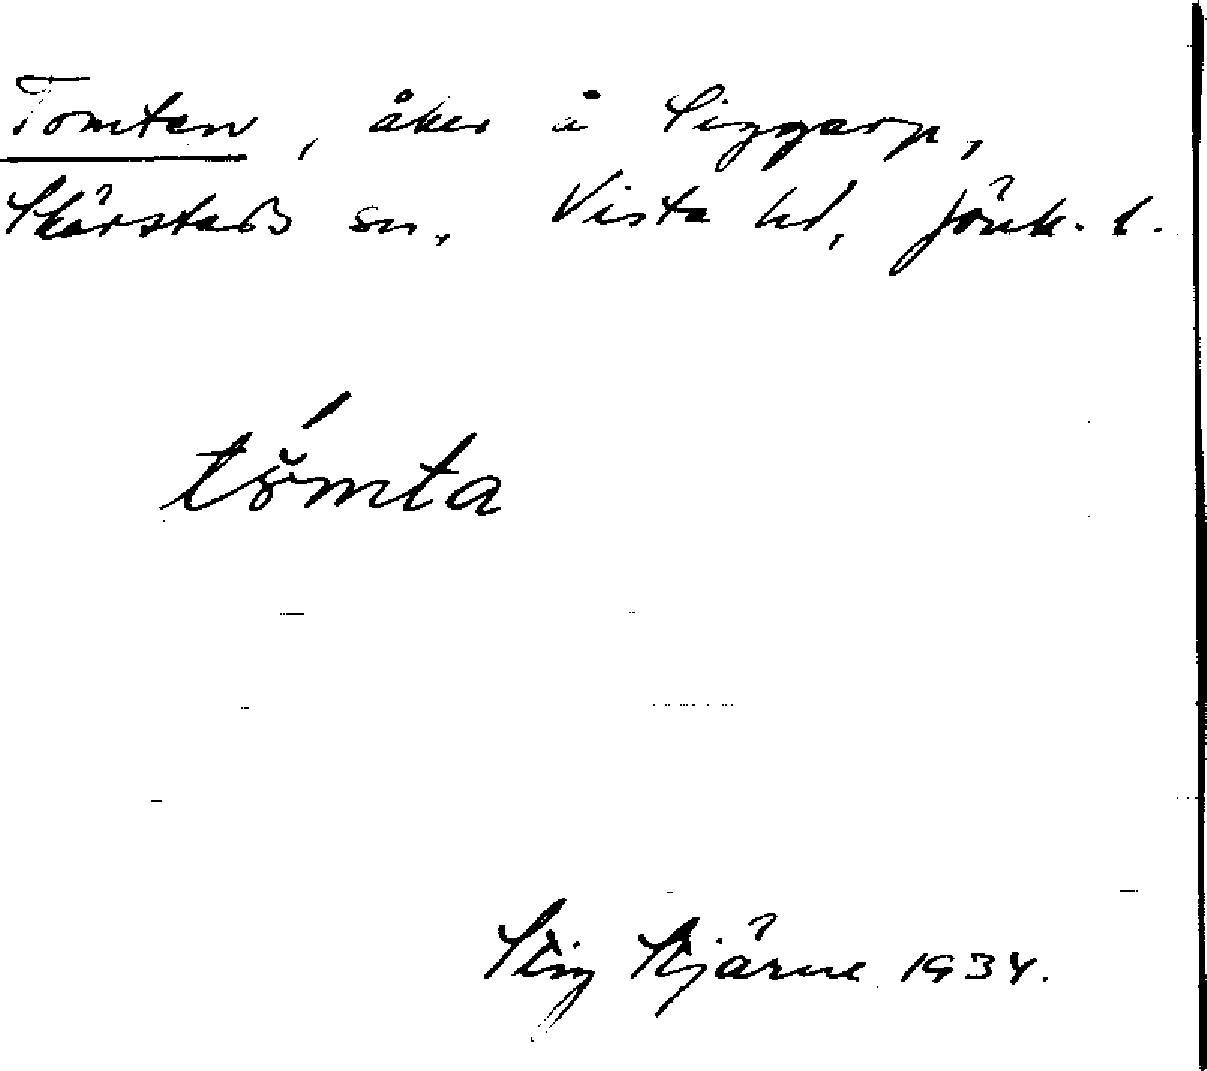 Tomten, åker å Siggarp,
Skärstads sn. Vista hd, Jönk. l.
tómta
Stig Stjärne 1934.